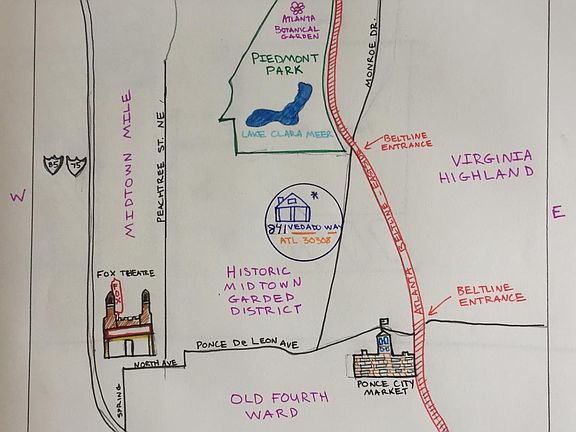 ATLANTA
BOTANICAL
GARDEN
PIEDMONT
PARK
LAKE CLARA MEER
MONROE DR.
BELTLINE
ENTRANCE
VIRGINIA
HIGHLAND
MIDTOWN MILE
PEACHTREE ST. NE.
85 75
W
E
*
841 VEDADO WAY
ATL 30308
HISTORIC
MIDTOWN
GARDED
DISTRICT
ATLANTA
BELTLINE
ENTRANCE
FOX THEATRE
FOX
PONCE DE LEON AVE
NORTH AVE
SPRING
PONCE CITY
MARKET
OLD FOURTH
WARD